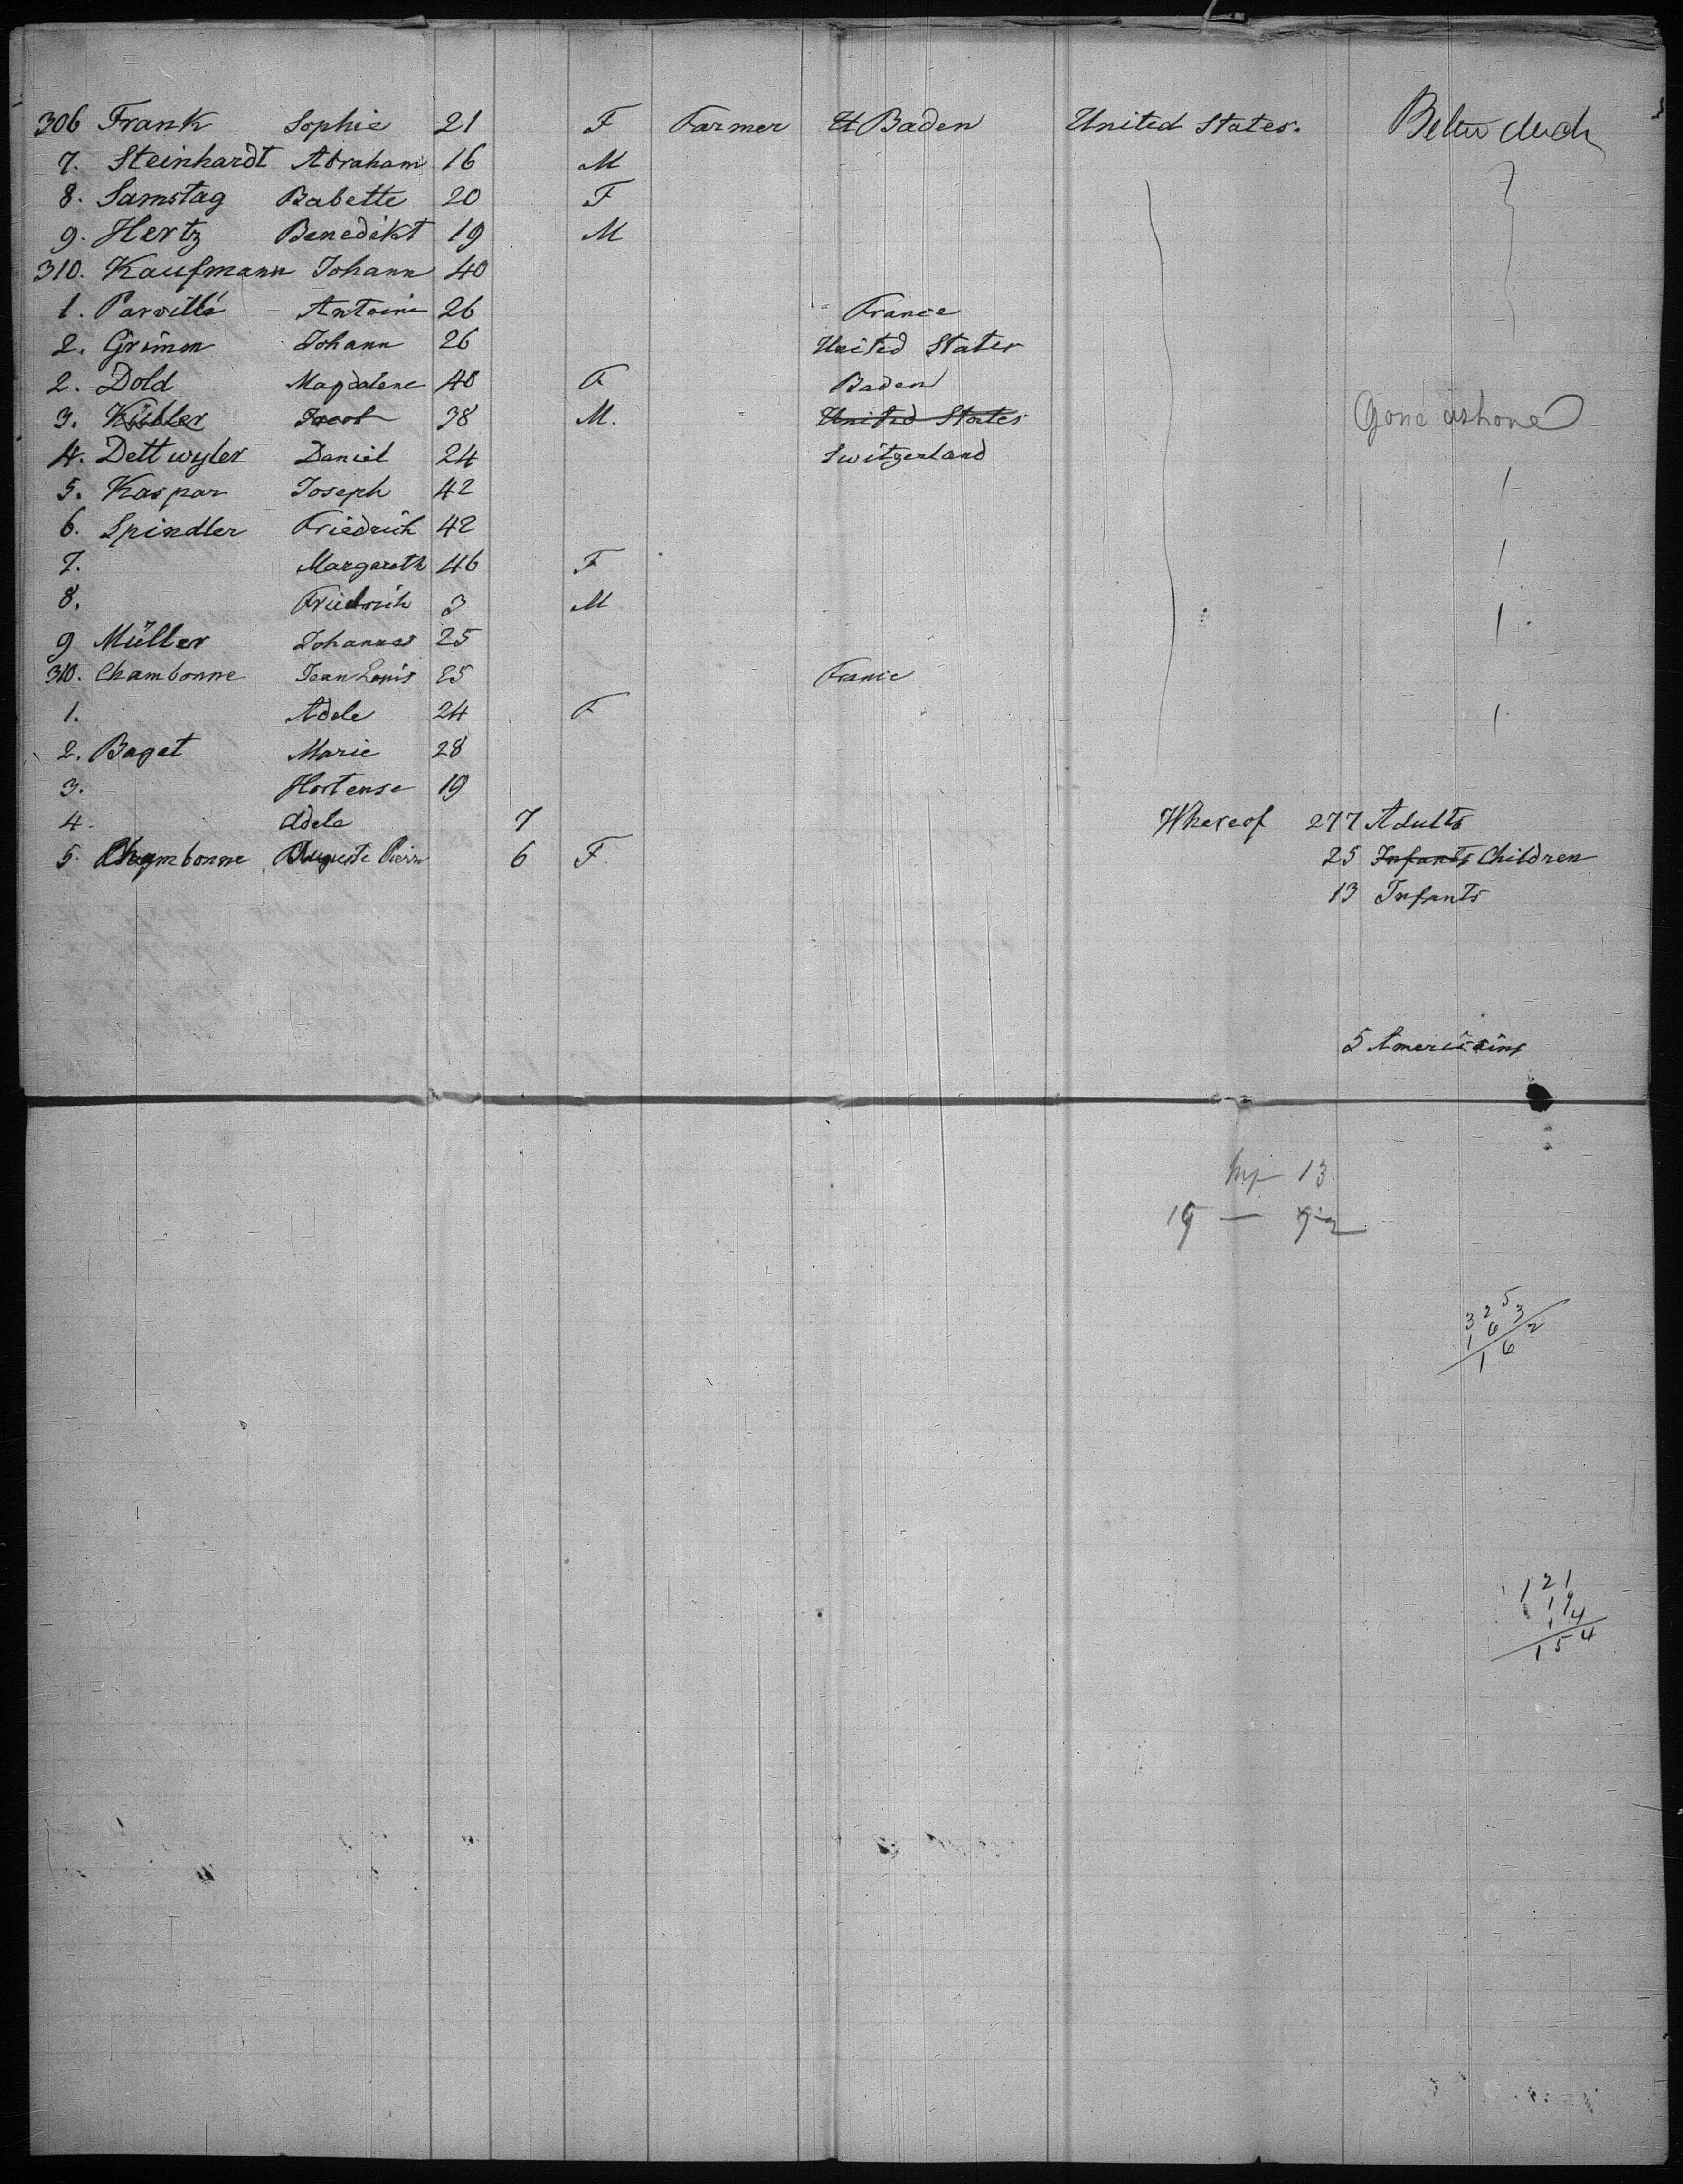 306 Frank Sophie 21 F Farmer Baden United States. Below deck
7. Steinhardt Abraham 16 M
8. Samstag Babette 20 F
9. Hertz Benedikt 19 M
310. Kaufmann Johann 40
1. Parvillé Antoine 26 France
2. Grimm Johann 26 United States
2. Dold Magdalene 40 F Baden
3. Kübler Jacob 38 M. United States Gone ashore
4. Dettwyler Daniel 24 Switzerland
5. Kaspar Joseph 42
6. Spindler Friedrich 42
7. Margareth 46 F
8. Friedrich 3 M
9 Müller Johannes 25
310. Chambonne Jean Louis 25 France
1. Adele 24 F
2. Baget Marie 28
3. Hortense 19
4. Adele 7 Whereof 277 Adults
5. Chambonne Auguste Pierre 6 F. 25 Infants Children
13 Infants
5 Americains
13
325
163
162
121
19
14
154